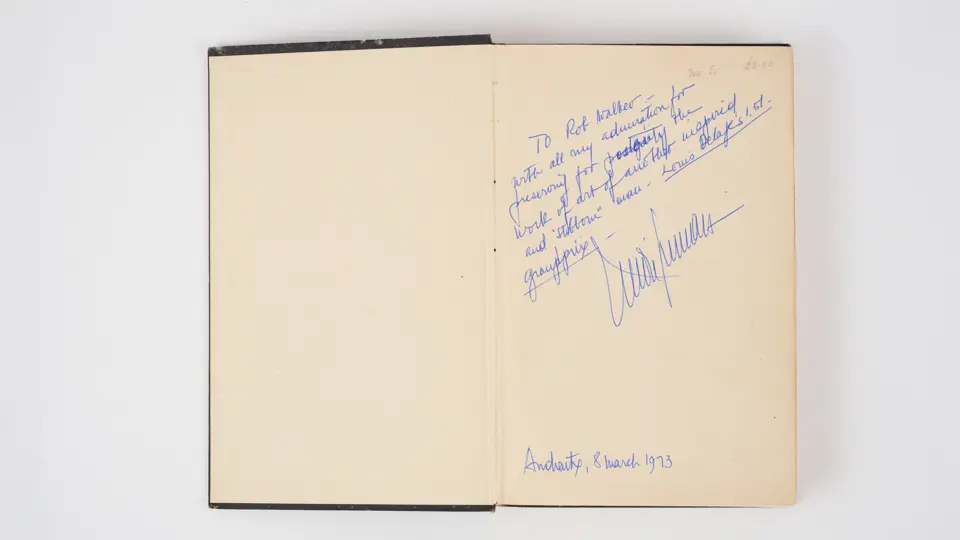 To Rob Walker –
with all my admiration for
preserving for posterity the
work of art of another inspired
and "stubborn" man – Louis Delage's 1.5l.
grandprix –
Andraitx, 8 march 1973